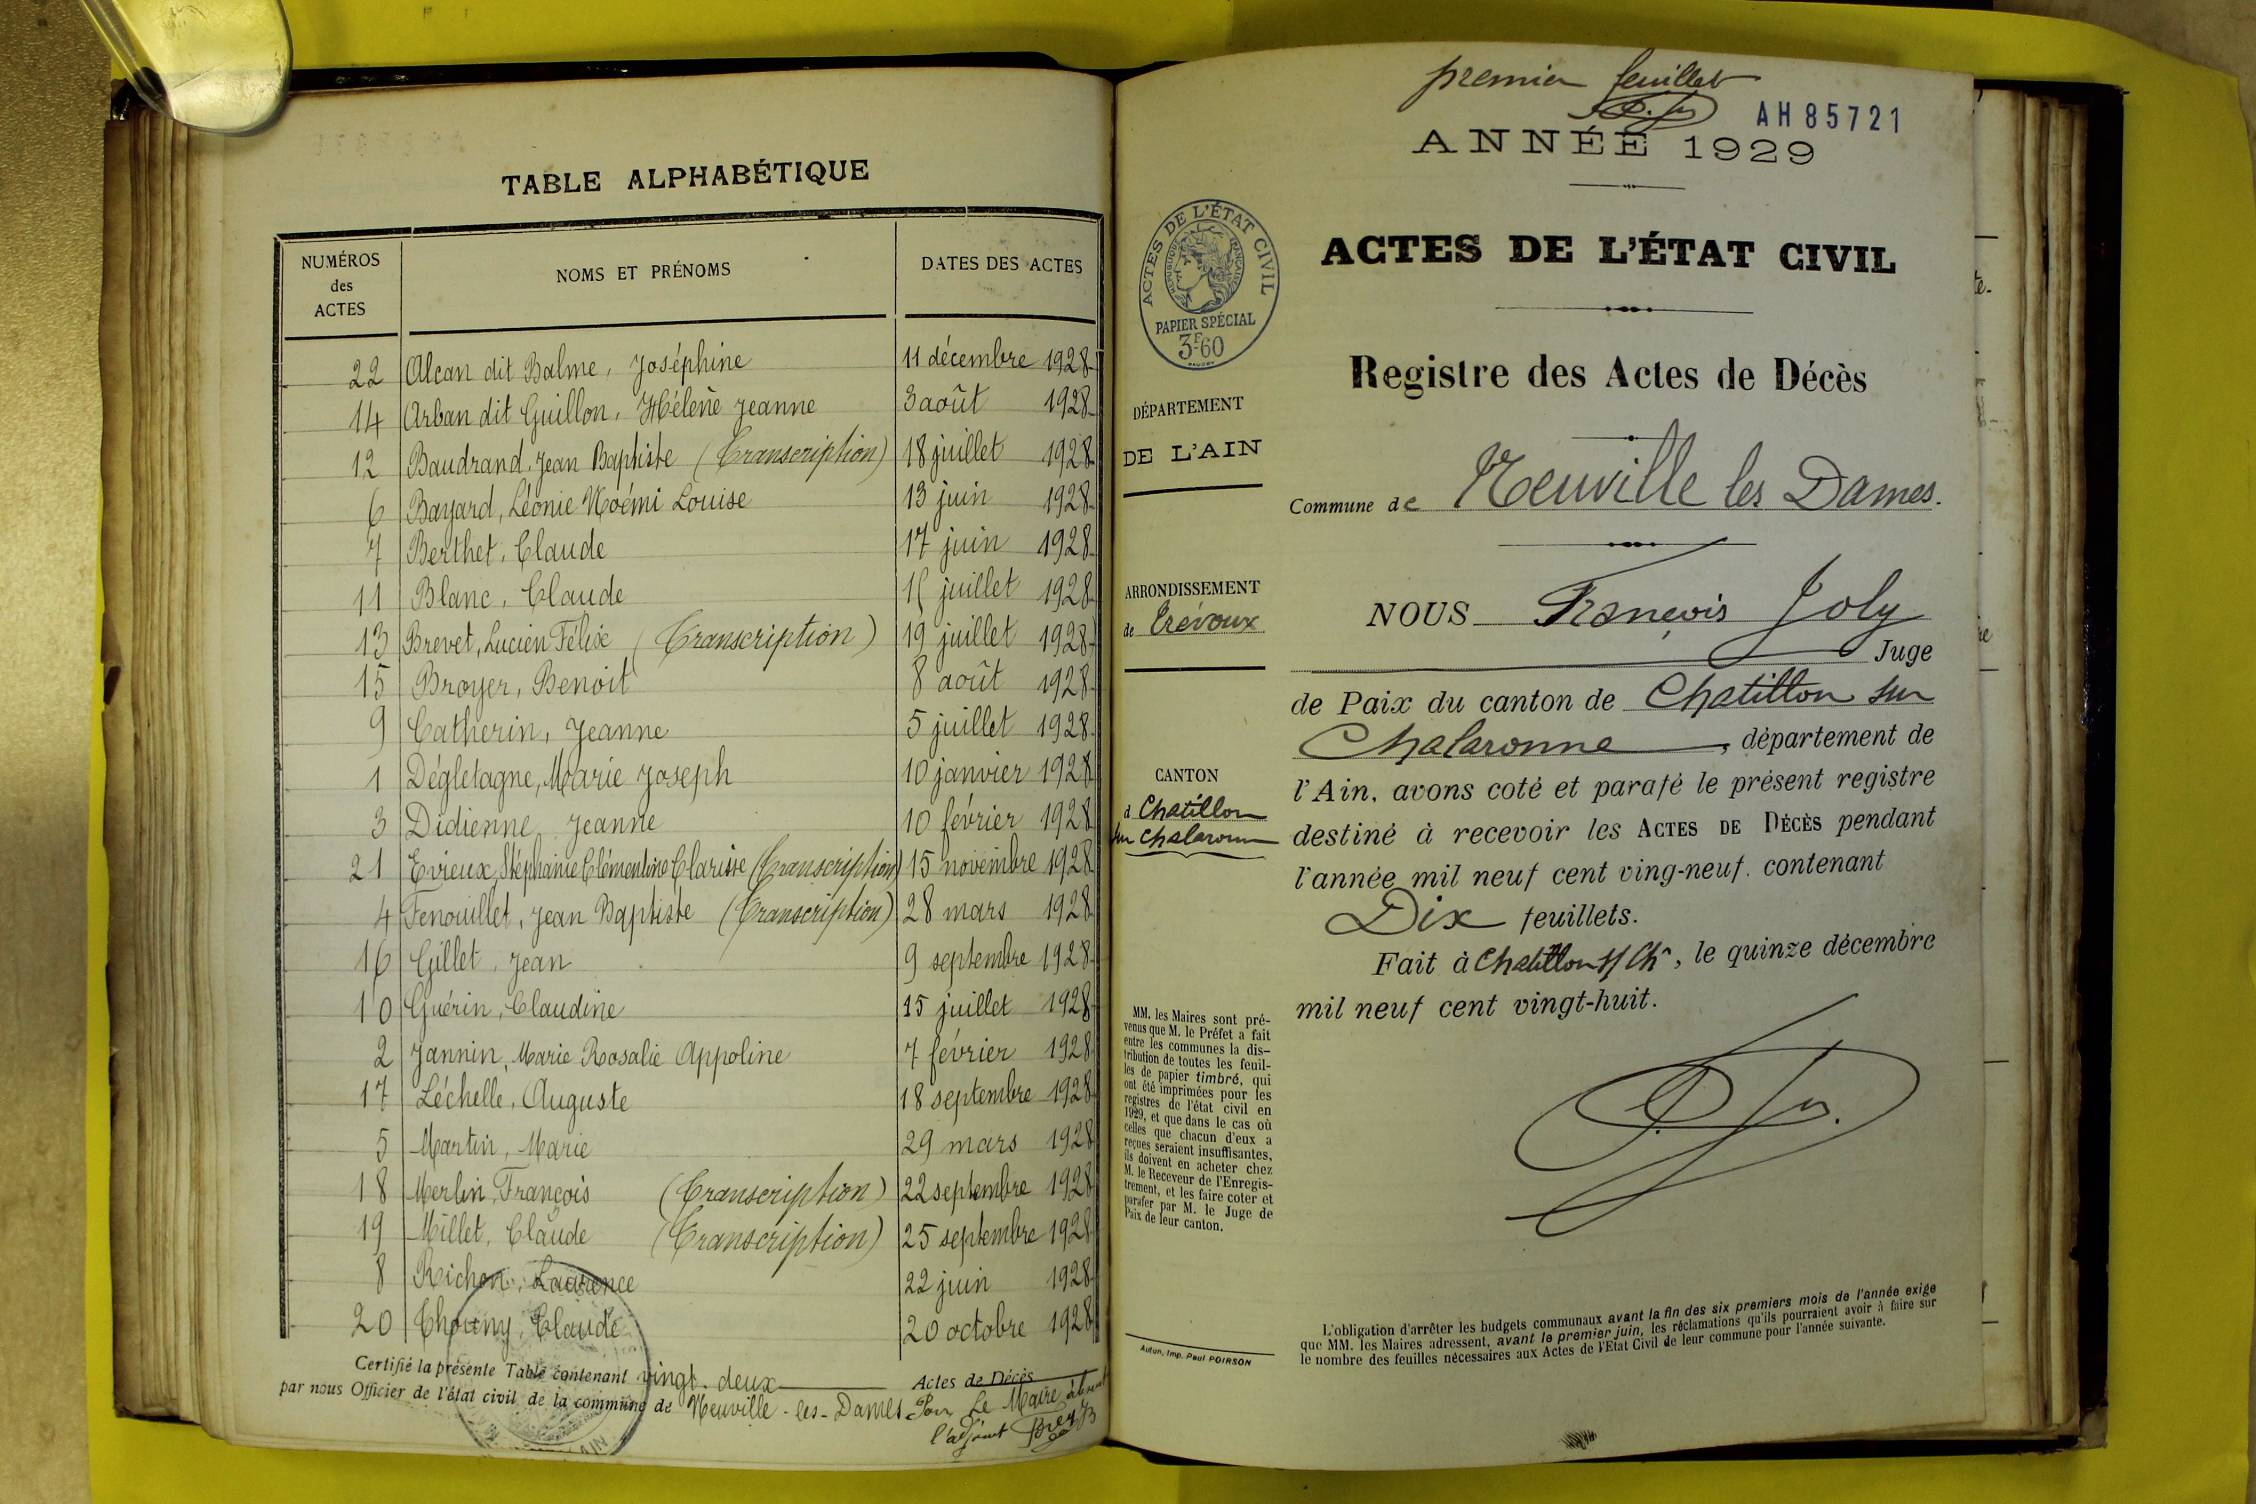 TABLE ALPHABÉTIQUE
NUMÉROS des ACTES NOMS ET PRÉNOMS DATES DES ACTES
22 Alcan dit Balme, Joséphine 11 décembre 1928
14 Arban dit Guillon, Hélène Jeanne 3 août 1928
12 Baudrand, Jean Baptiste (Transcription) 18 juillet 1928
6 Bayard, Léonie Noémi Louise 13 juin 1928
7 Berthet, Claude 17 juin 1928
11 Blanc, Claude juillet 1928
13 Brevet, Lucien Félix (Transcription) 19 juillet 1928
15 Broyer, Benoit 8 août 1928
9 Catherin, Jeanne 5 juillet 1928
1 Dégletagne, Marie Joseph 10 janvier 1928
3 Didienne Jeanne 10 février 1928
21 Evieux, Stéphanie Clémentine Clarisse (Transcription) 15 novembre 1928
4 Fenouillet, Jean Baptiste (Transcription) 28 mars 1928
16 Gillet, Jean 9 septembre 1928
10 Guérin, Claudine 15 juillet 1928
2 Jannin, Marie Rosalie Appoline 7 février 1928
17 Léchelle, Auguste 18 septembre 1928
5 Martin, Marie 29 mars 1928
18 Merlin, François (Transcription) 22 septembre 1928
19 Millet, Claude (Transcription) 25 septembre 1928
8 Richon, Laurence 22 juin 1928
20 Thoveny, Claude 20 octobre 1928
Certifié la présente Table contenant vingt-deux Actes de Décès
par nous Officier de l'état civil de la commune de Neuville-les-Dames Pour Le Maire absent
l'adjoint
premier feuillet
AH85721
ANNÉE 1929
ACTES DE L'ÉTAT CIVIL
RÉPUBLIQUE FRANÇAISE
PAPIER SPÉCIAL
3F60
ACTES DE L'ÉTAT CIVIL
Registre des Actes de Décès
DÉPARTEMENT
DE L'AIN
Commune de Neuville les Dames.
ARRONDISSEMENT
de Trévoux
NOUS François Joly
Juge
de Paix du canton de Chatillon sur
Chalaronne, département de
l'Ain, avons coté et parafé le présent registre
destiné à recevoir les ACTES DE DÉCÈS pendant
l'année mil neuf cent ving-neuf. contenant
Dix feuillets.
Fait à Chatillon s/ Ch, le quinze décembre
mil neuf cent vingt-huit.
CANTON
d Chatillon
sur Chalaronne
MM. les Maires sont pré-
venus que M. le Préfet a fait
entre les communes la dis-
tribution de toutes les feuil-
les de papier timbré, qui
ont été imprimées pour les
registres de l'état civil en
1929, et que dans le cas où
celles que chacun d'eux a
reçues seraient insuffisantes,
ils doivent en acheter chez
M. le Receveur de l'Enregis-
trement, et les faire coter et
parafer par M. le Juge de
Paix de leur canton.
Autun, Imp. Paul POIRSON
L'obligation d'arrêter les budgets communaux avant la fin des six premiers mois de l'année exige
que MM. les Maires adressent, avant le premier juin, les réclamations qu'ils pourraient avoir à faire sur
le nombre des feuilles nécessaires aux Actes de l'Etat Civil de leur commune pour l'année suivante.